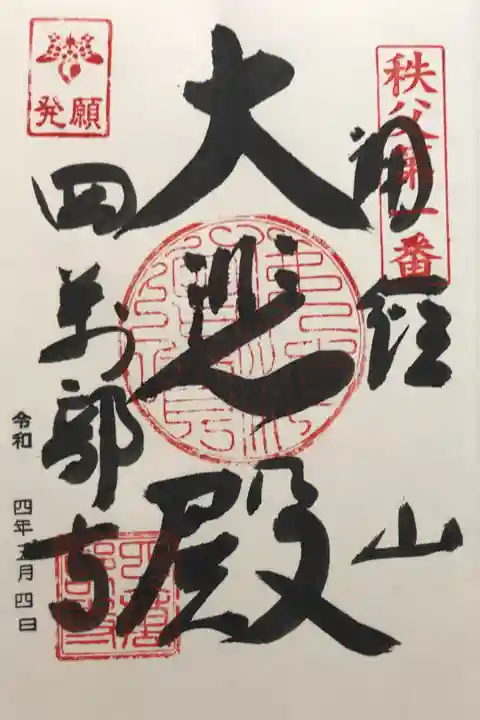 秩父第一番
誦経山
大悲殿
発願
四萬部寺
令和 四年五月四日